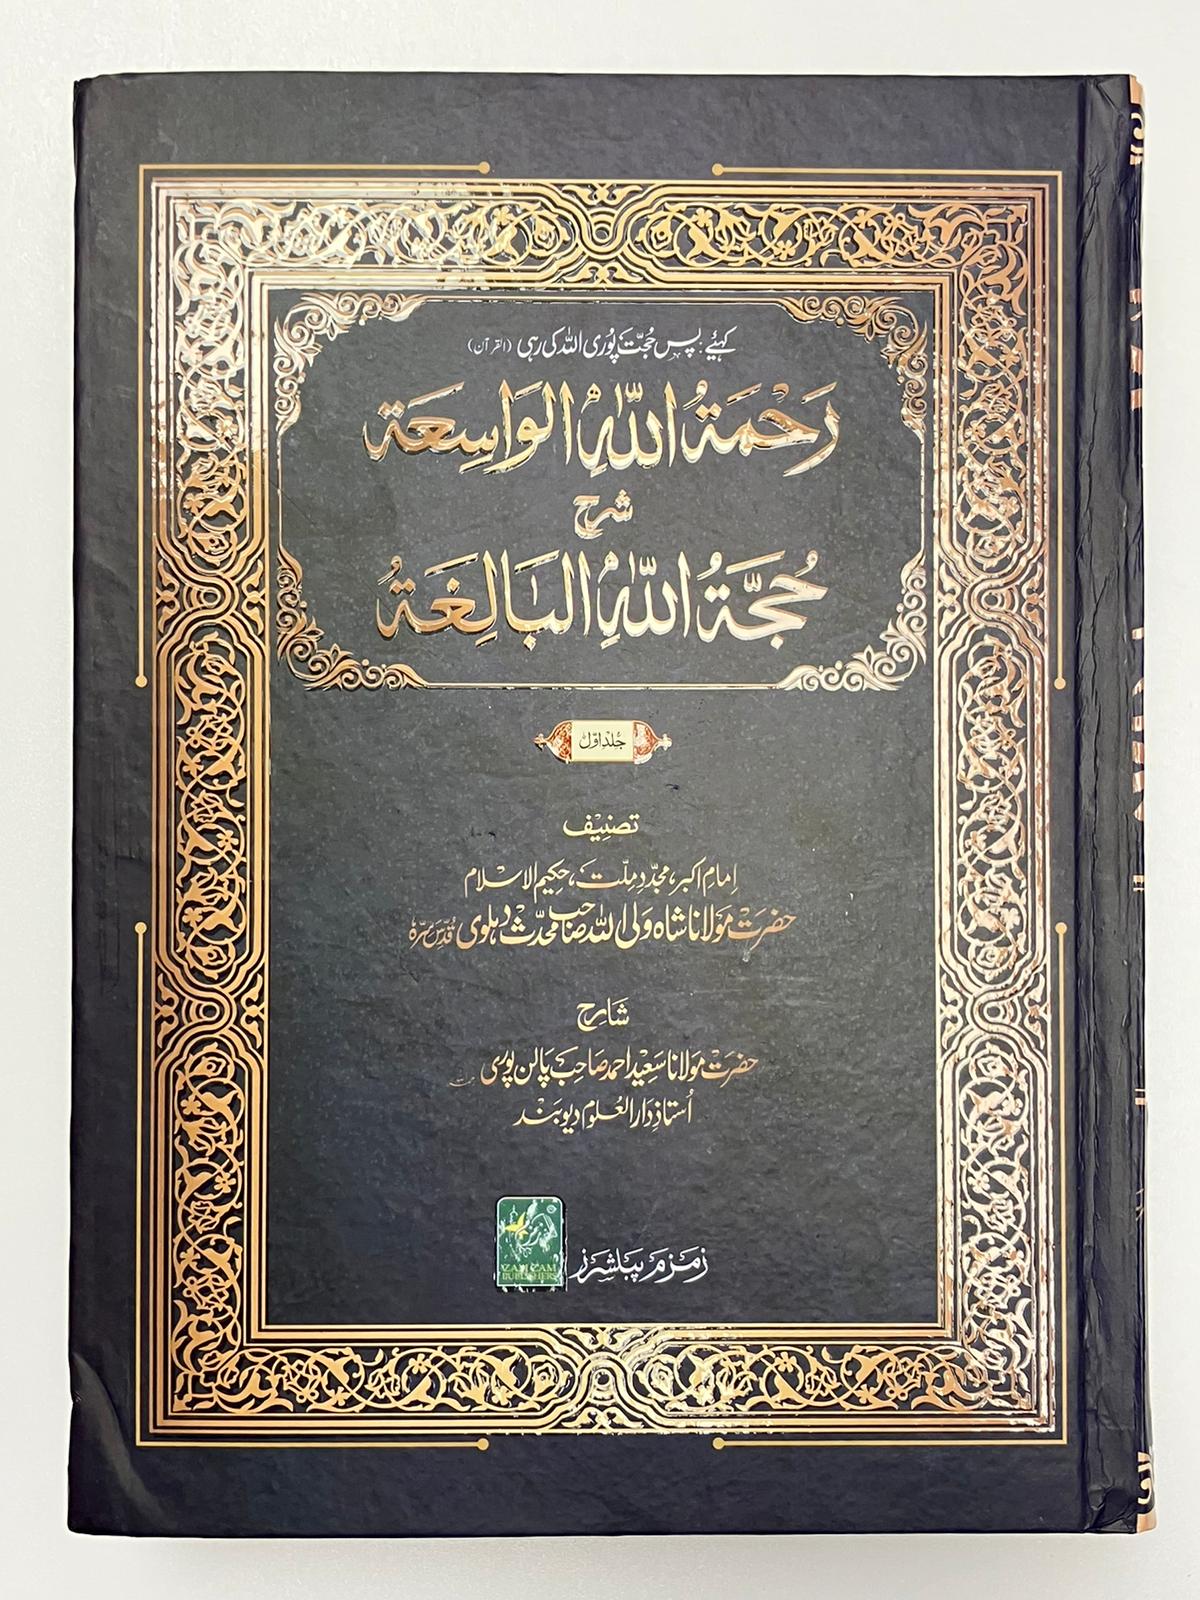 کہئیے: پس حُجّت پُوری اللہ کی رہی (القرآن)
رَحْمَةُ اللّٰهِ الْوَاسِعَة
شرح
حُجَّةُ اللّٰهِ الْبَالِغَةُ
جُلد اوّل
تصنیف
اِمامِ اکبر، مجدّدِ ملّت، حکیم الاسلام
حضرت مولانا شاہ ولی اللہ صاحب محدّث دہلوی قُدِّسَ سِرُّہٗ
شارح
حضرت مولانا سعید احمد صاحب پالن پوری
اُستاذِ دارالعلوم دیوبند
زمزم پبلشرز
ZAM ZAM
PUBLISHERS